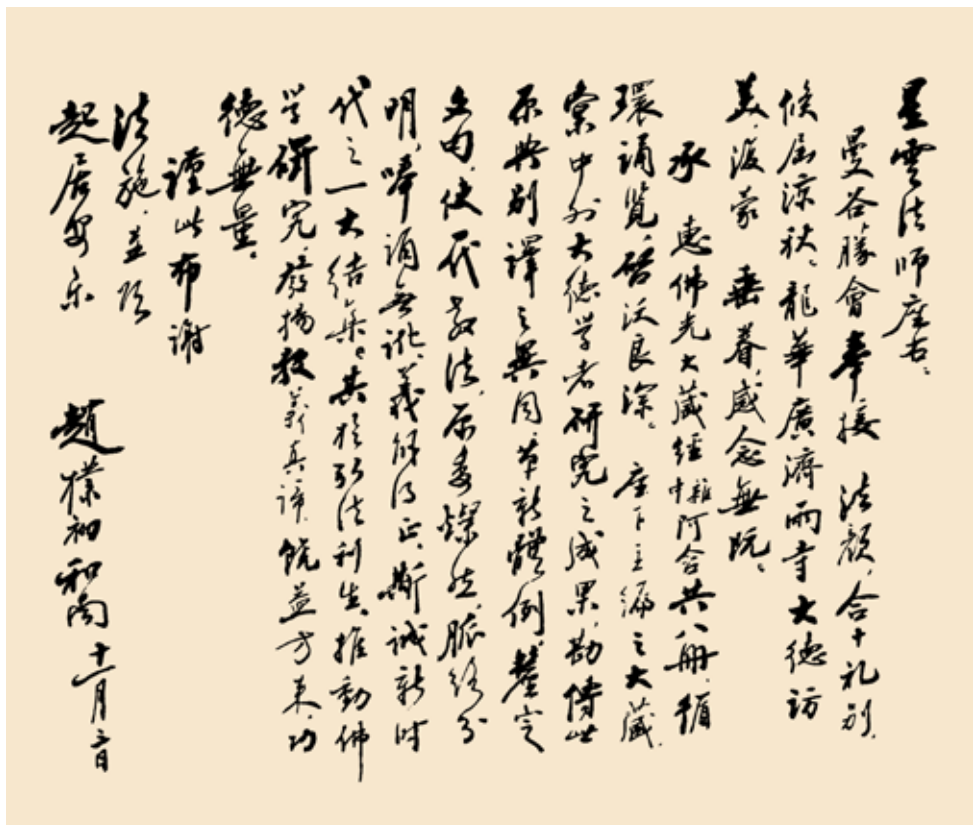 星雲法師座右：
曼谷勝會奉接　法顏，合十礼别，
倏屆涼秋。龍華廣濟両寺大德訪
美，復蒙　垂眷，感念無既。
承　惠佛光大藏經雜中阿含共八册，循
環誦覽，啓沃良深。座下主編之大藏，
彙中外大德学者研究之成果，勘傳世
原典别譯之異同，革新體例，釐定
文句，使一代教法，原委燦然，脈絡分
明，嗶誦無訛，義解得正，斯誠新時
代之一大结集。其於弘法利生，推動佛
学研究，發揚教義真諦，饒益方来，功
德無量。
謹此布謝
法施，並頌
起居安乐
趙樸初和南 十一月三日